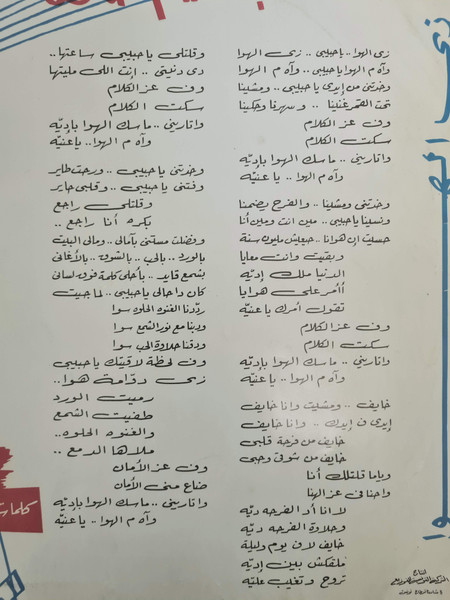 زى الهوا .. يا حبيبى .. زى الهوا
وآه م الهوا يا حبيبى .. وآه م الهوا
وخدتنى من إيدى يا حبيبى .. ومشينا
تحت القمر غنينا .. وسهرنا وحكينا
وف عز الكلام
سكت الكلام
واتاريني .. ماسك الهوا بإديّه
وآه م الهوا .. يا عنيّه
وخدتنى ومشينا .. والفرح يضمنا
ونسينا يا حبيبى .. مين انت ومين أنا
حسيت إن هوانا .. حيعيش مليون سنة
وبقيت وانت معايا
الدنيا ملك إديّه
أأمر على هوايا
تقول أمرك يا عنيّه
وف عز الكلام
سكت الكلام
واتاريني .. ماسك الهوا بإديّه
وآه م الهوا .. يا عنيّه
خايف .. ومشيت وانا خايف
إيدى ف إيدك .. وانا خايف
خايف من فرحة قلبى
خايف من شوقى وحبى
وياما قلتلك أنا
واحنا فى عز الهنا
لا انا أد الفرحه ديّه
وحلاوة الفرحه ديّه
خايف لاف يوم وليلة
ملقكش بين إديّه
تروح وتغيب عليّه
وقلتلى يا حبيبى ساعتها ..
دى دنيتى .. إنت اللى مليتها
وف عز الكلام
سكت الكلام
واتاريني .. ماسك الهوا بإديّه
وآه م الهوا .. يا عنيّه
وخدتنى يا حبيبى .. ورحت طاير
وفتنى يا حبيبى .. وقلبى حاير
وقلتلى راجع
بكره أنا راجع ..
وفضلت مستنى بآمالى .. ومالى البيت
بالورد .. بالحب .. بالشوق .. بالأغانى
بشمع قايد .. بأحلى كلمة فوق لسانى
كان دا حالى يا حبيبى .. لما جيت
ردّدنا الغنوه الحلوه سوا
ودبنا مع نور الشمع سوا
ودقنا حلاوة الحب سوا
وف لحظة لاقيتك يا حبيبى
زى دوّامة هوا ..
رميت الورد
طفنيت الشمع
والغنوه الحلوه ..
ملاها الدمع ..
وف عز الأمان
ضاع منى الأمان
واتاريني .. ماسك الهوا بإديّه
وآه م الهوا .. يا عنيّه
زى الهوا
انتاج